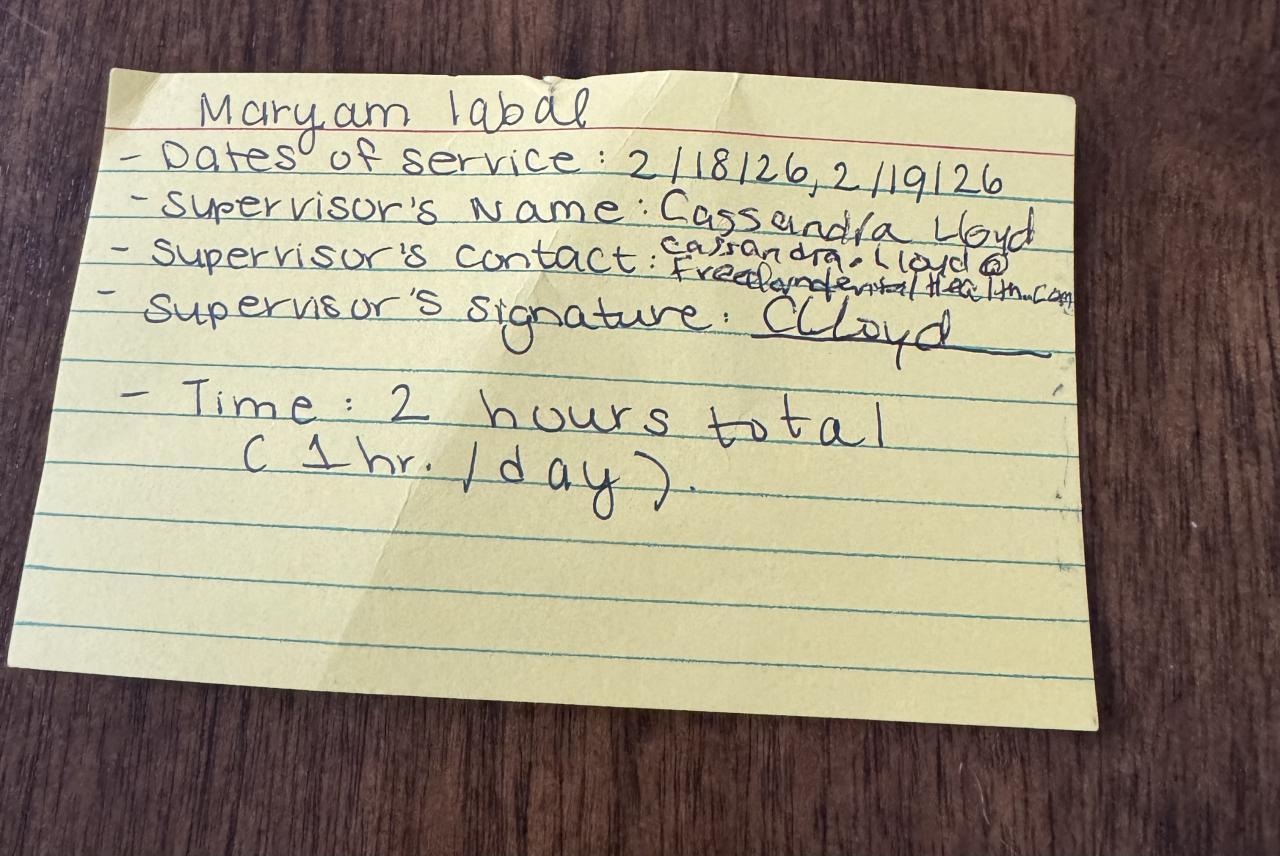 Maryam Iqbal
- Dates of service: 2/18/26, 2/19/26
- Supervisor's Name: Cassandra Lloyd
- Supervisor's contact: Cassandra.Lloyd@
- Supervisor's signature: CLloyd
- Time: 2 hours total
(1 hr. /day).